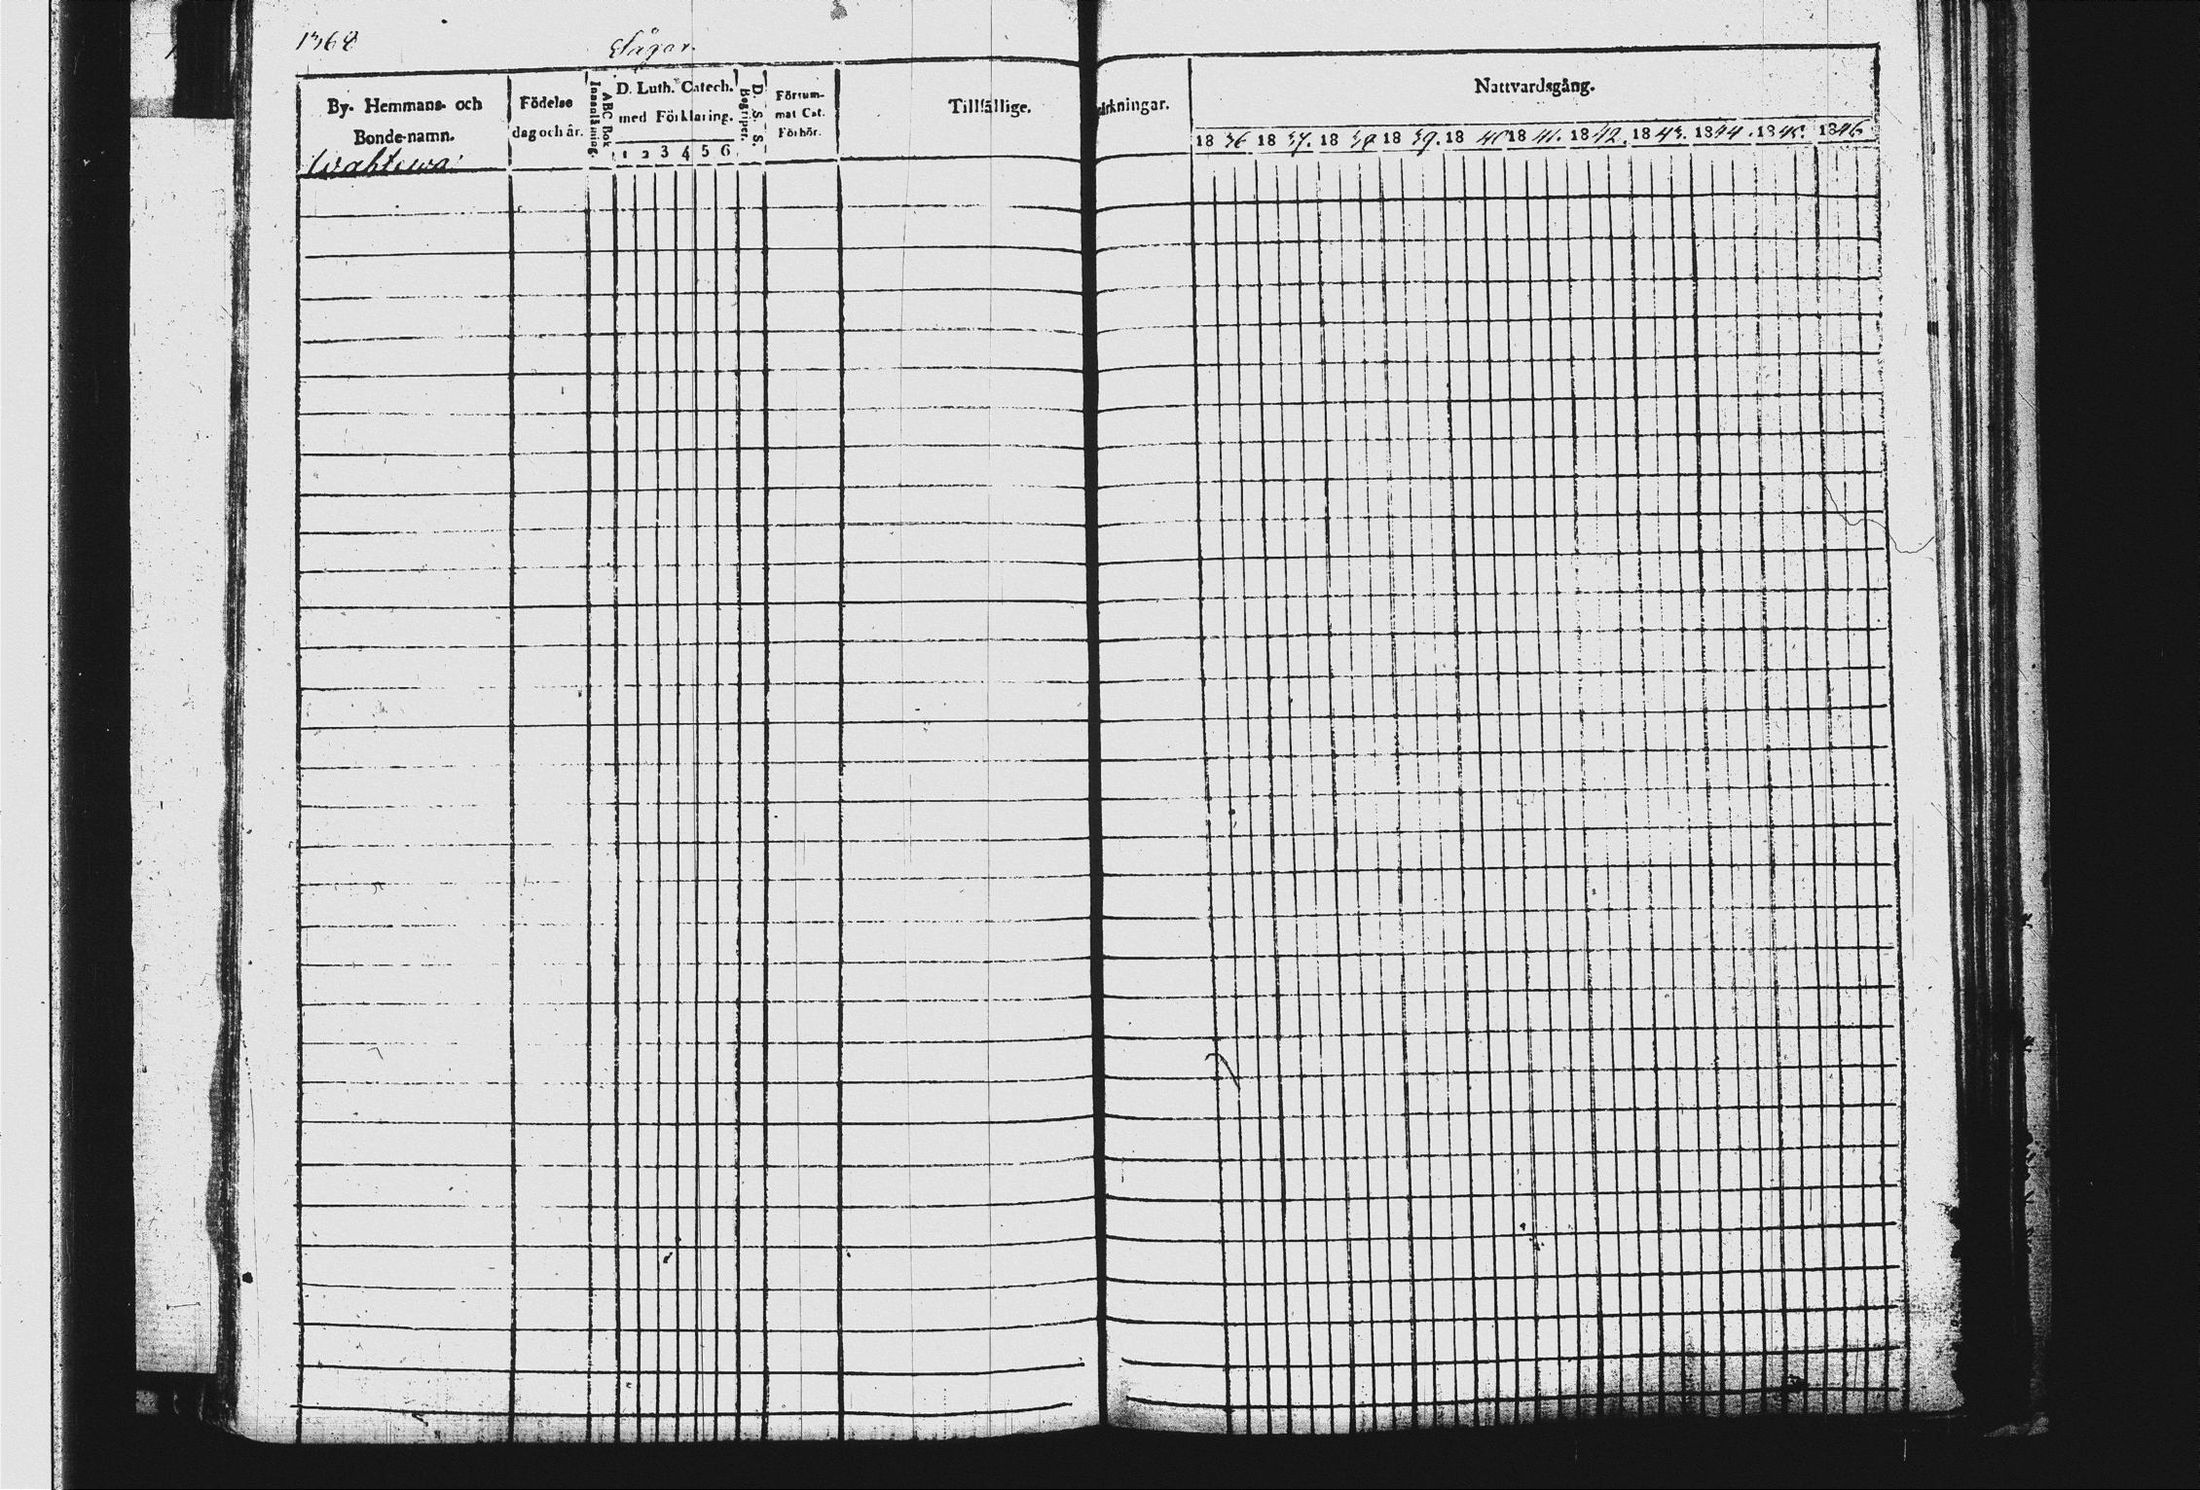 1368
By- Hemmans- och
Bonde-namn.
Födelse
dag och år.
ABC Bok
Innanläsning.
D. Luth. Catech.
med Förklaring.
1 2 3 4 5 6
D. S. S.
Begriper.
Försum-
mat Cat.
Förhör.
Tillfällige.
ärkningar.
Nattvardsgång.
1836 1837. 1838 1839. 1840 1841. 1842. 1843. 1844. 1845. 1846